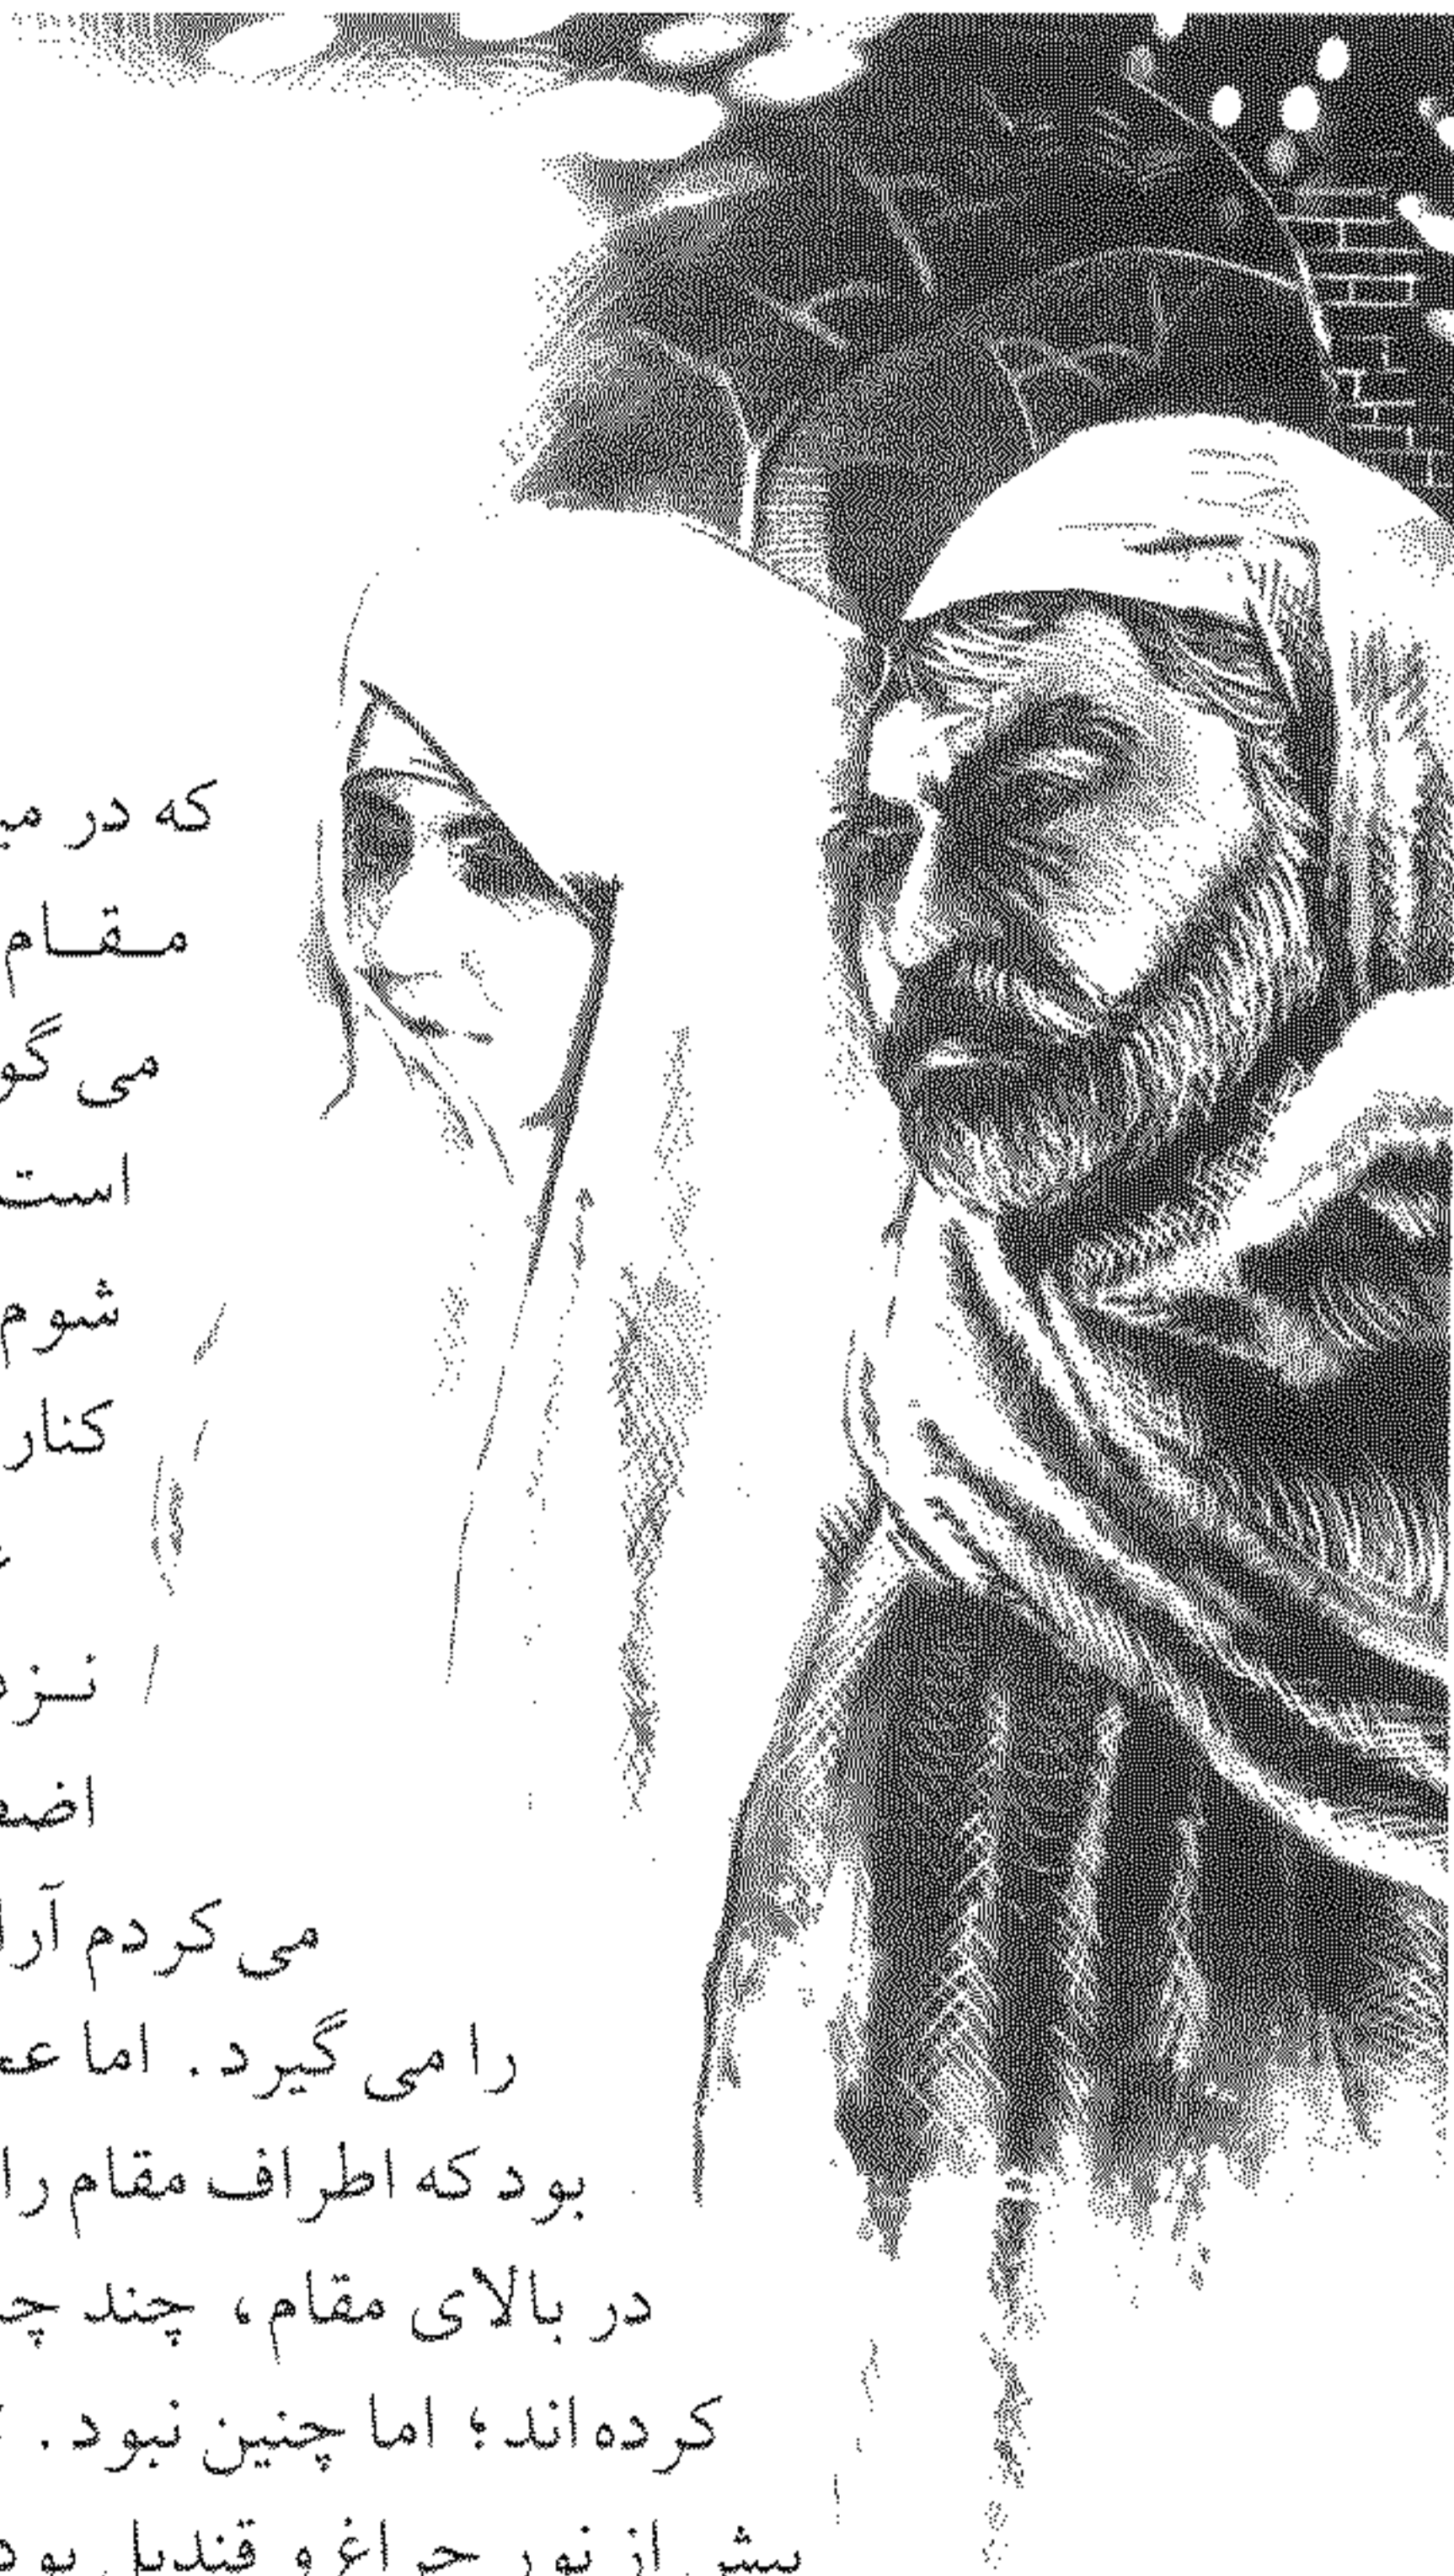 که در
مـقـام
می
است
شوم
کنار
می‌کردم
را می‌گیرد. اما
بود که اطراف مقام را
در بالای مقام، چند
کرده‌اند؛ اما چنین نبود.
بیش از نور چراغ و قندیل بود